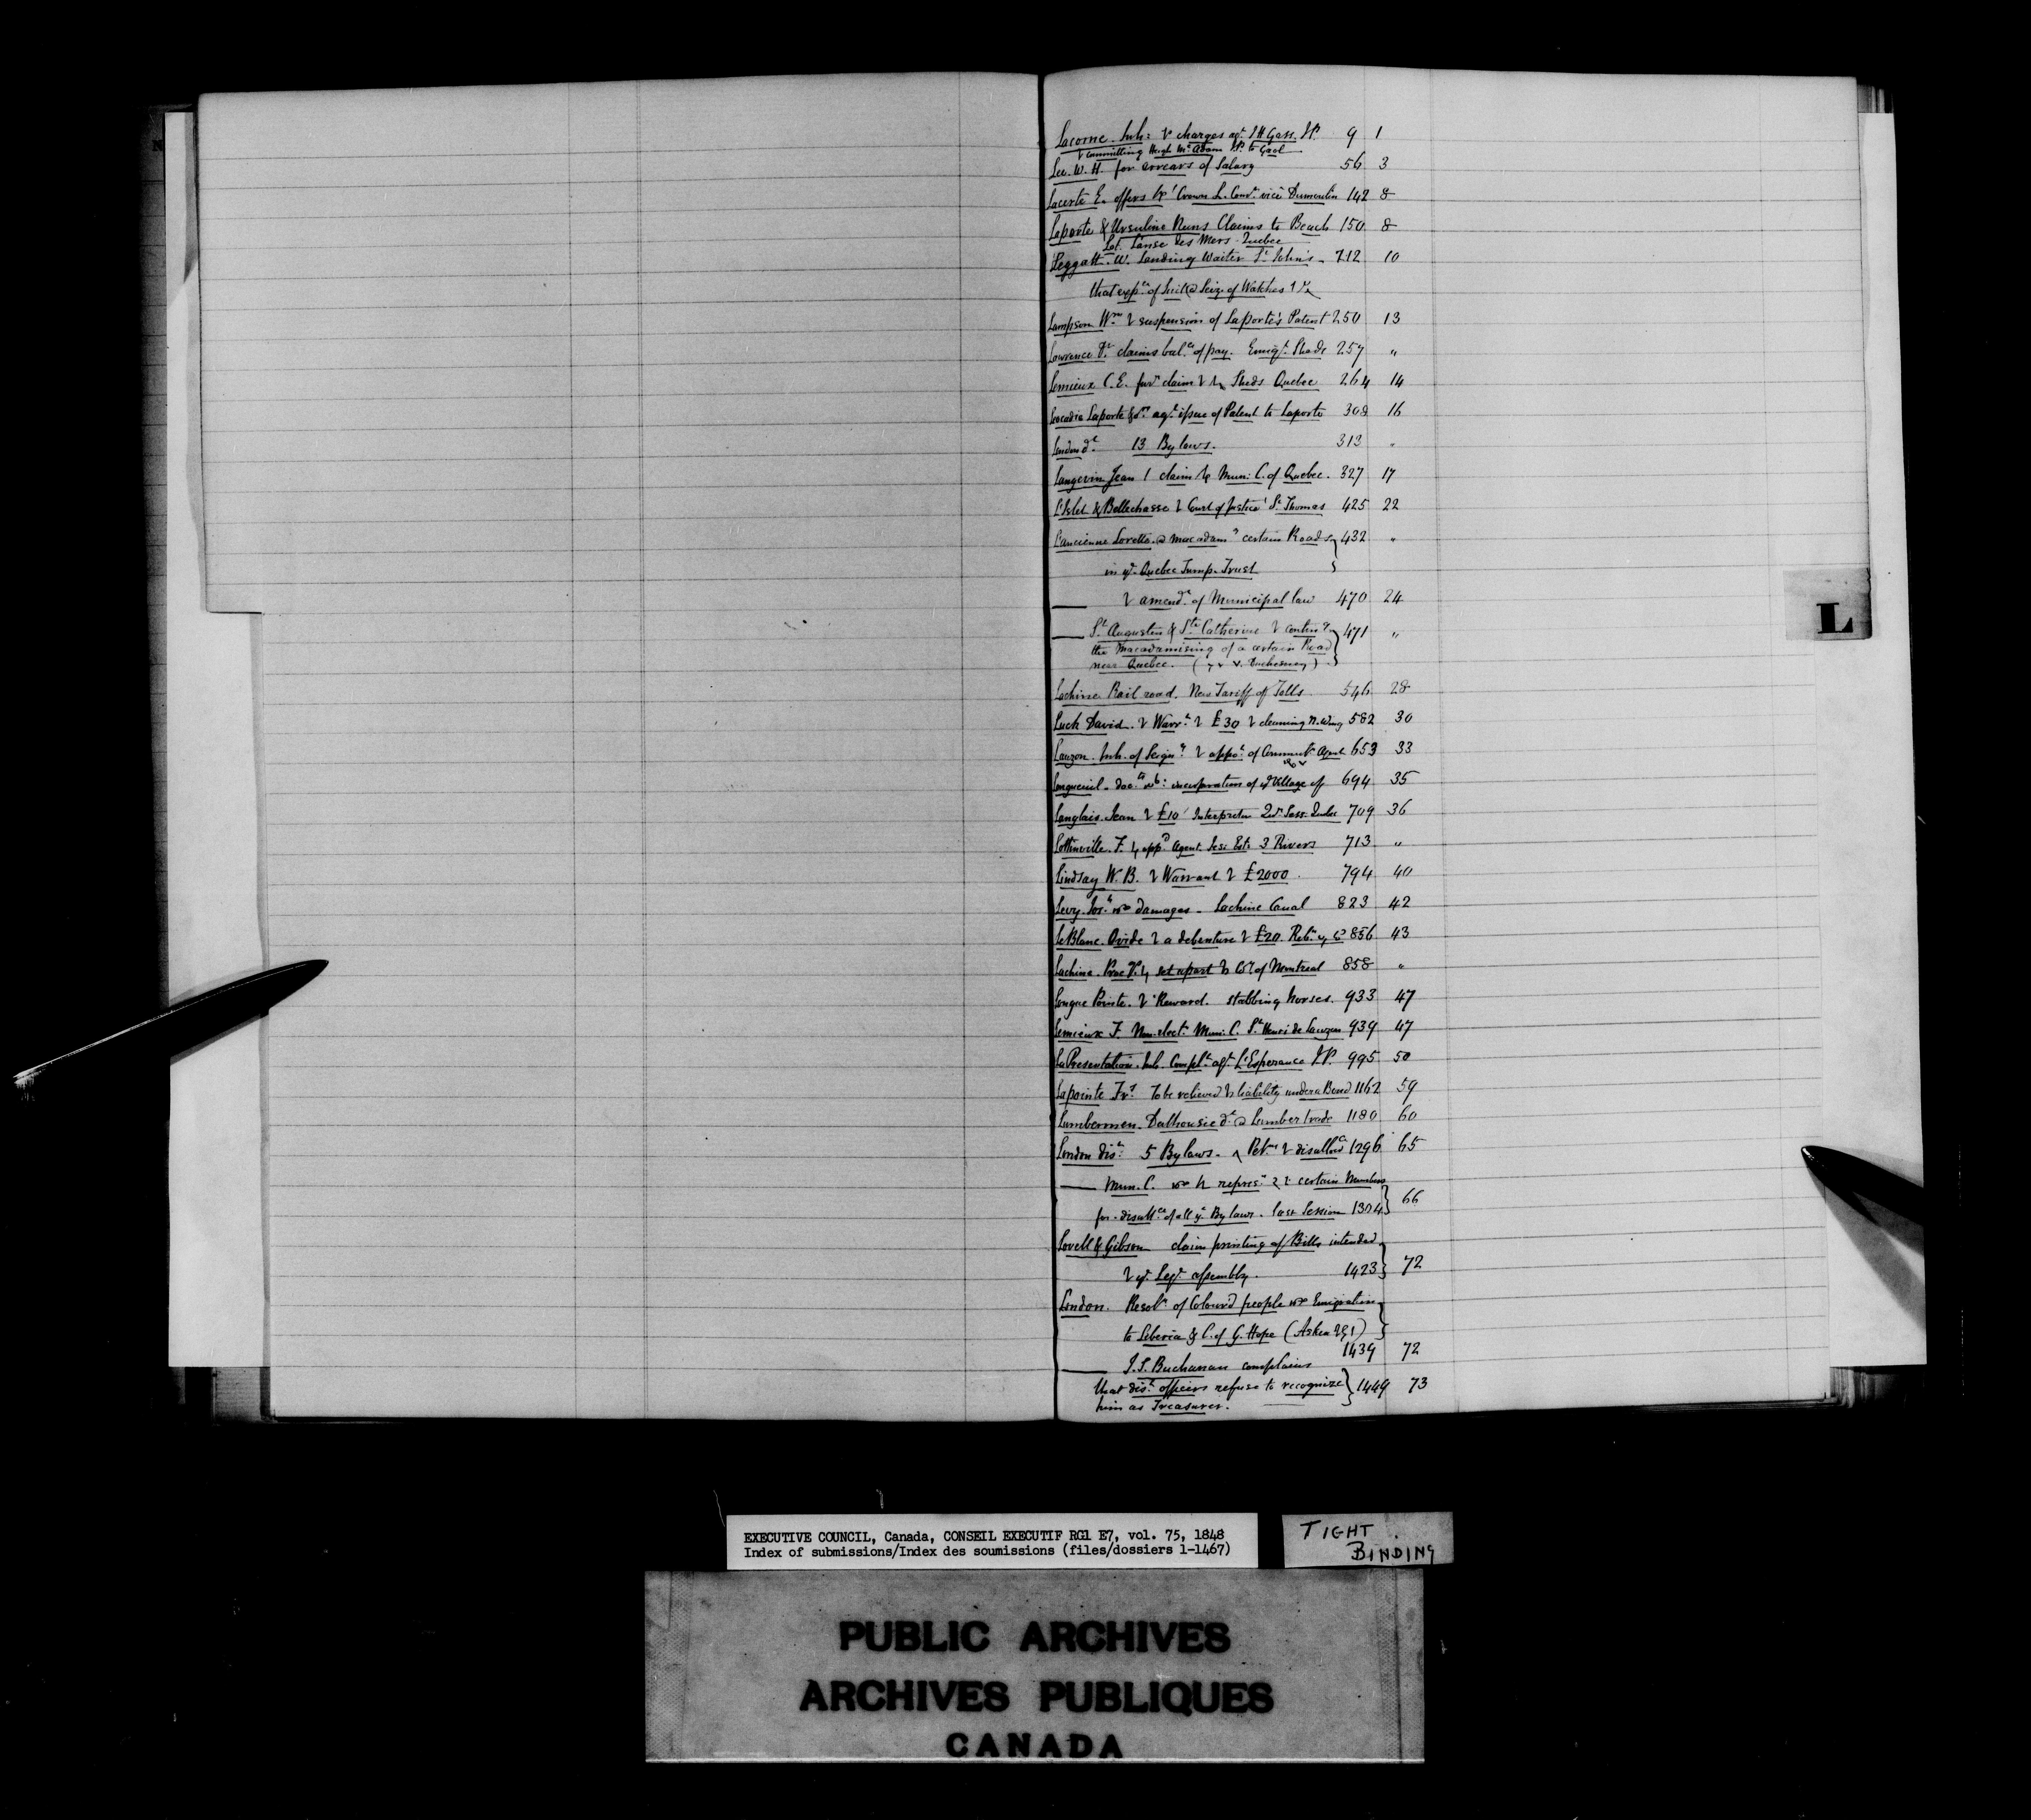 Lacorne. Inh: & charges agt. J H Gass. JP. 9 1
& committing Hugh McAdam JP. to Gaol
Lee. W. H. for arrears of Salary 56 3
Lacerte E. offers Crown L. vice Dumoulin 142 8
Laporte & Ursuline Nuns Claims to Beach 150 8
Lot. L'anse des Mers - Quebec
Leggatt. W. Landing Waiter St. John's - 212 10
that of Seiz. of Watches
Lampson Wm suspension of Laporte's Patent 250 13
Lawrence Dr claims bal.ce of pay. Emigt. Sheds 257 "
Lemieux C. E. claim Sheds Quebec 264 14
Leocadie Laporte agt issue of Patent to Laporte 308 16
London 13 By laws. 313 "
Langevin Jean claim Mun: C. of Quebec. 327 17
L'Islet & Bellechasse Court of Justice St Thomas 425 22
L'ancienne Lorette certain Roads 432 "
in ye. Quebec Turnp. Trust
— amendt. of Municipal law 470 24
— St. Augustin & Ste Catherine 471 "
the Macadamising of a certain Road
near Quebec. ( v. Duchesnay )
Lachine Rail road. New Tariff of Tolls. 546 28
Luck David. Warrt. £30 cleaning N. Wing 582 30
Lauzon. Inh. of Seigny. of Agent 653 33
Longueuil - incorporation of ye Village of 694 35
Langlais. Jean £10 Interpreter Qr. Sess. Quebec 709 36
Lottinville. F. Agent. Jes: Ests 3 Rivers 713 "
Lindsay W. B. Warrant £2000. 794 40
Levy. damages - Lachine Canal 823 42
LeBlanc. Ovide a debenture £20. 856 43
Lachine. set apart of Montreal 858 "
Longue Pointe. Reward. stabbing horses. 933 47
Lemieux F. Mun: C. St. Henri de Lauzon 939 47
La Presentation. Inh. Complt. agt. L'Esperance J.P. 995 50
Lapointe To be relieved liability under a Bond 1162 59
Lumbermen. Dalhousie Lumber trade 1180 60
London dist. 5 By laws. Petn & disallce 1296 65
— Mun. C. certain Members
for disallce of all ye By laws. last Session 1304 66
Lovell & Gibson claim printing of Bills intended
ye. Leg. assembly. 1423 72
London. Resolns of Coloured people Emigration
to Liberia & C. of G. Hope (Askin )
1439 72
— J. S. Buchanan complains
that dist. officers refuse to recognize 1449 73
him as Treasurer.
L
EXECUTIVE COUNCIL, Canada, CONSEIL EXECUTIF RG1 E7, vol. 75, 1848
Index of submissions/Index des soumissions (files/dossiers 1-1467)
TIGHT
BINDING
PUBLIC ARCHIVES
ARCHIVES PUBLIQUES
CANADA